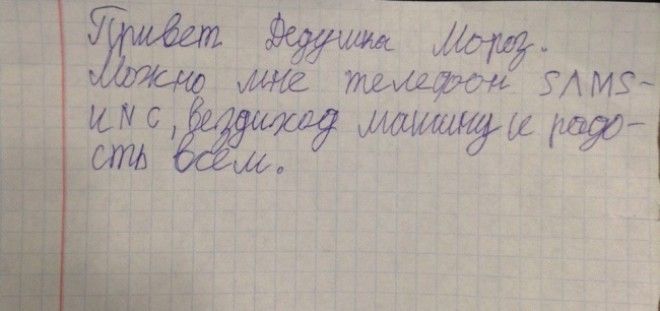 Привет Дедушка Мороз.
Можно мне телефон SAMS-
UNG, вездиход машину и радо-
сть всем.